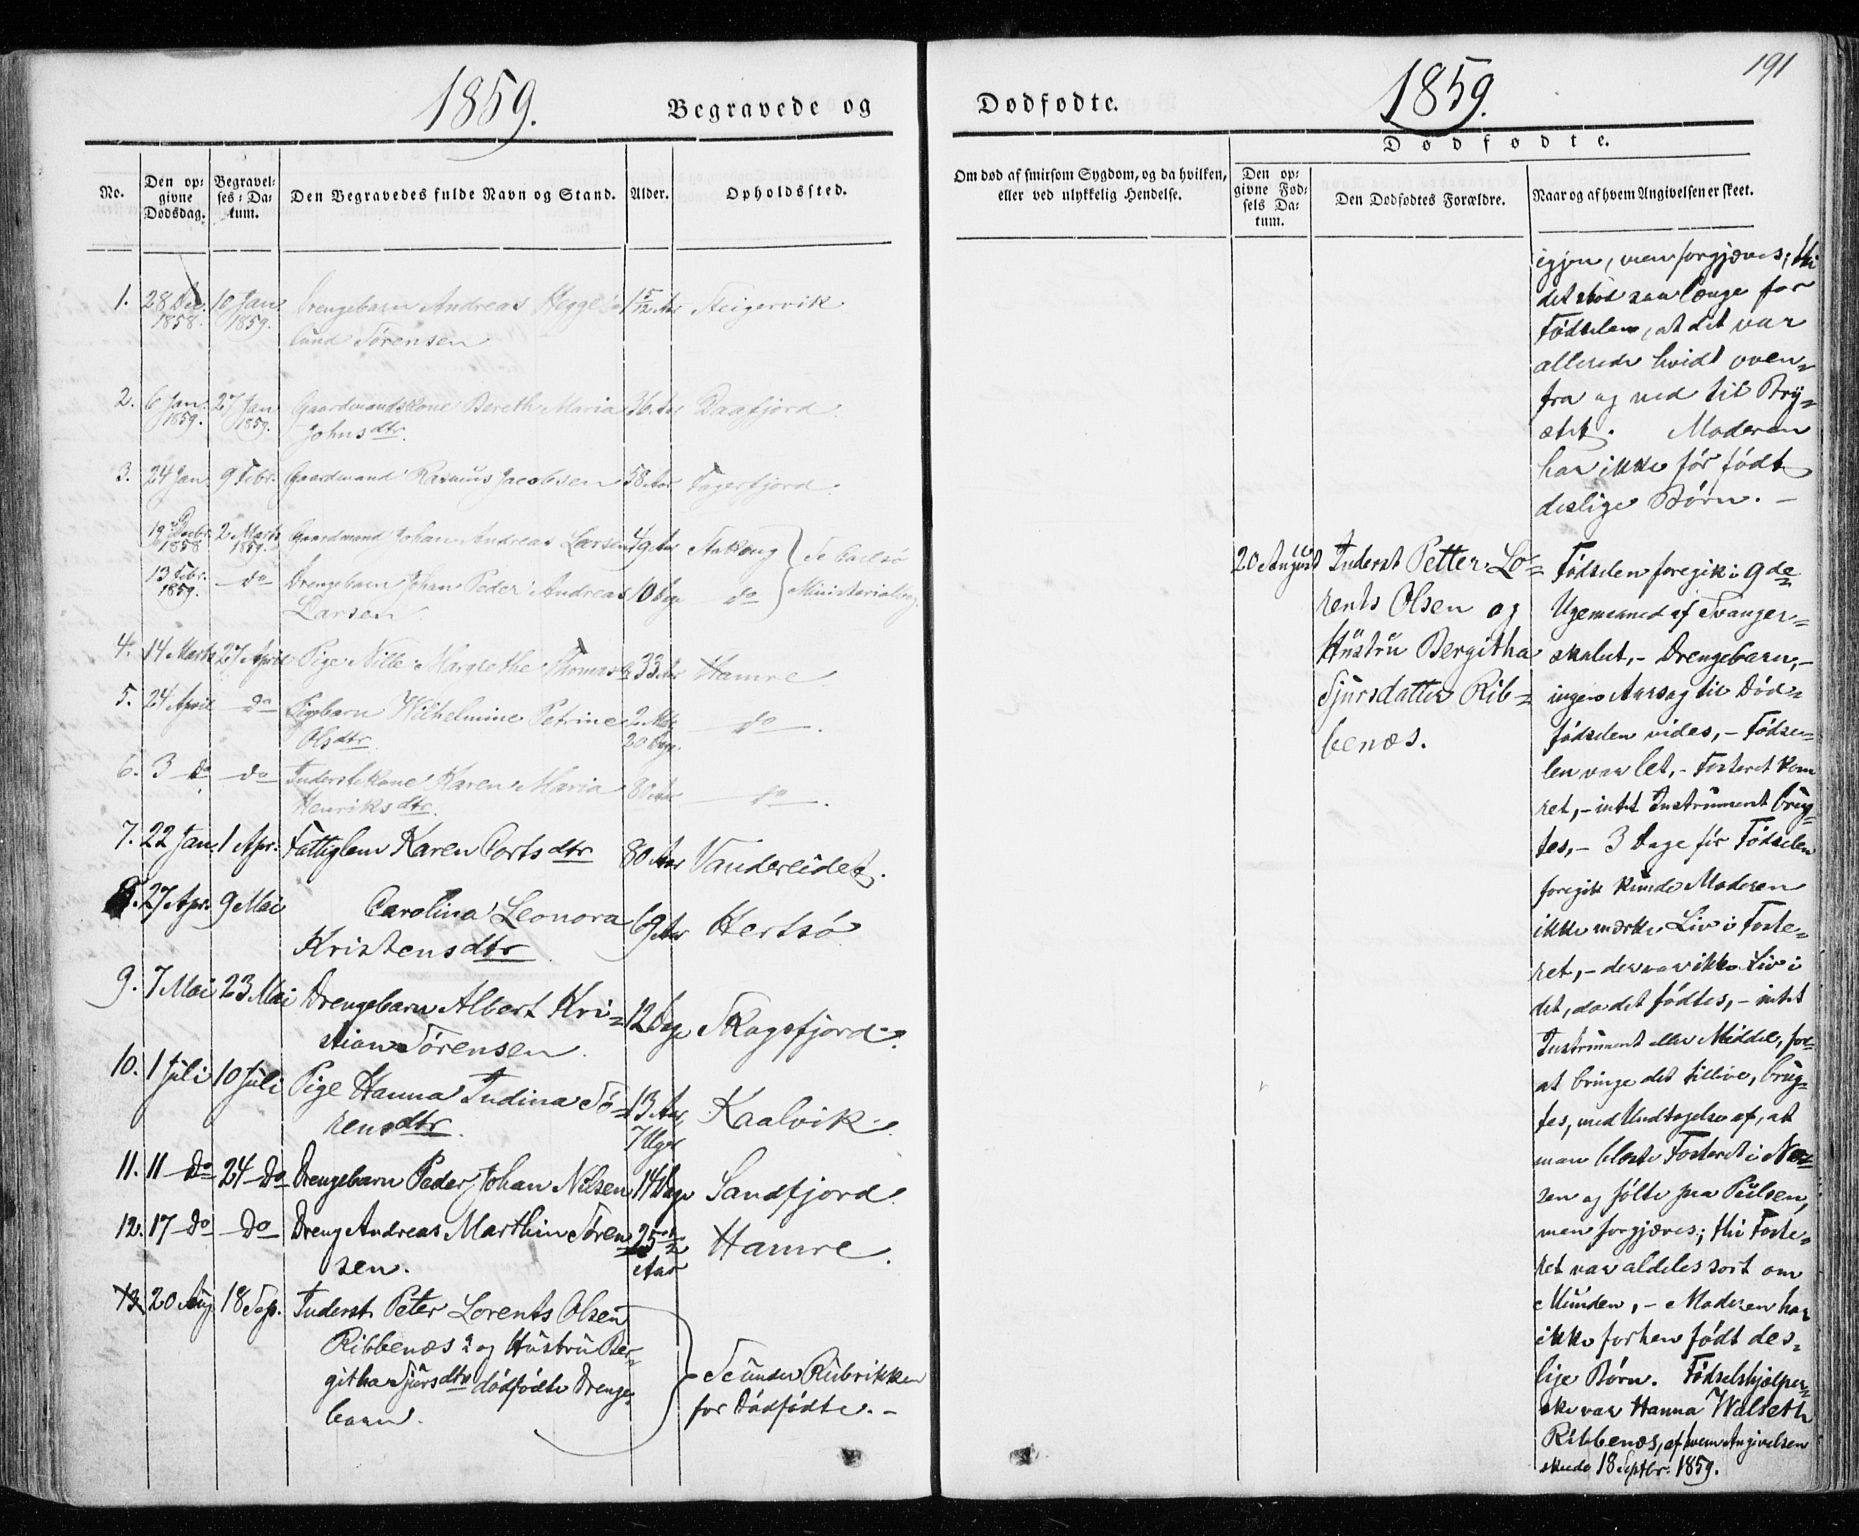 191
1859. Begravede og Dødfødte. 1859.
Dødfødte.
No.
Den op-
givne
Dødsdag.
Begravel-
ses-Da-
tum.
Den Begravedes fulde Navn og Stand.
Alder.
Opholdssted.
Om død af smitsom Sygdom, og da hvilken,
eller ved ulykkelig Hendelse.
Den op-
givne Fød-
sels Da-
tum.
Den Dødfødtes Forældre.
Naar og af hvem Angivelsen er skeet.
1. 28 Dec. 10 Jan Drengebarn Andreas Hegge- 1 5/12 Aar Steigervik
1858. 1859. lund Sørensen
2. 6 Jan. 27 Jan Gaardmandskone Bereth Maria 36 Aar Daafjord.
1859. 1859. Johnsdtr.
3. 24 Jan 9 Febr. Gaardmand Rasmus Jacobsen 58 Aar Dagerfjord.
19 Decbr. 2 Marts Gaardmand Johan Andreas Larsen 49 Aar Stakong Se Carlsø
1858 1859.
13 Febr. do Drengebarn Johan Peder Andreas 10 Dage do Ministerialbog
1859. Larsen
4. 14 Marts 27 April Pige Nille Margrethe Thomasd 33 Aar Hamre
5. 24 April do Pigebarn Wilhelmine Petrine 2 Mdr do.
Olsdtr. 20 Dage.
6. 3 do do Inderstekone Karen Maria 80 Aar do.
Henriksdtr.
7. 22 Jan 1 Apr. Fattiglem Karen Cortsdtr 80 Aar Vandereidet.
8. 27 Apr. 9 Mai Carolina Leonora 69 Aar Hertsø
Kristensdtr
9. 7 Mai 23 Mai Drengebarn Albert Kri- 12 Dage Skogsfjord.
stian Sørensen.
10. 1 Juli 10 Juli Pige Hanna Indina Sø- 13 Aar, Kaalvik.
rensdtr. 7 Uger
11. 11 do 24 do Drengebarn Peder Johan Nilsen 14 Dage Sandfjord.
12. 17 do do Dreng Andreas Marthin Søren- Hamre.
sen. Aar
13 20 Aug 18 Sep. Inderst Peter Lorents Olsen
Ribbenæs og Hustru Ber-
githa Sjursdtr dødfødte Drenge-
barn.
Se under Rubrikken
for Dødfødte. -
20 August Inderst Petter Lo-
rents Olsen og
Hustru Bergitha
Sjursdatter Rib-
benæs.
igjen, men forgjæves; thi
det stod saa længe for
Fødselen, at det var
allerede hvidt oven-
fra og ned til Bry-
stet. Moderen
har ikke før født
deslige Børn. -
Fødselen foregik i 9de
Ugemaaned af Svanger-
skabet, - Drengebarn, -
ingen Aarsag til Død-
fødselen vides, - Fødse-
len var let, - Fosteret kom
ret, - intet Instrument brug-
tes, - 3 Dage før Fødselen
foregik kunde Moderen
ikke mærke Liv i Foste-
ret, - der var ikke Liv i
det, da det fødtes, - intet
Instrument eller Middel, for
at bringe det tillive, brug-
tes, med Undtagelse af, at
man blæste Fosteret i Næ-
sen og følte paa Pulsen,
men forgjæves; thi Foste-
ret var aldeles sort om
Munden, - Moderen har
ikke forhen født des-
lige Børn. Fødselshjælper-
ske var Hanna Walseth
Ribbenæs, af hvem Angivelsen
skede 18 Septbr. 1859.